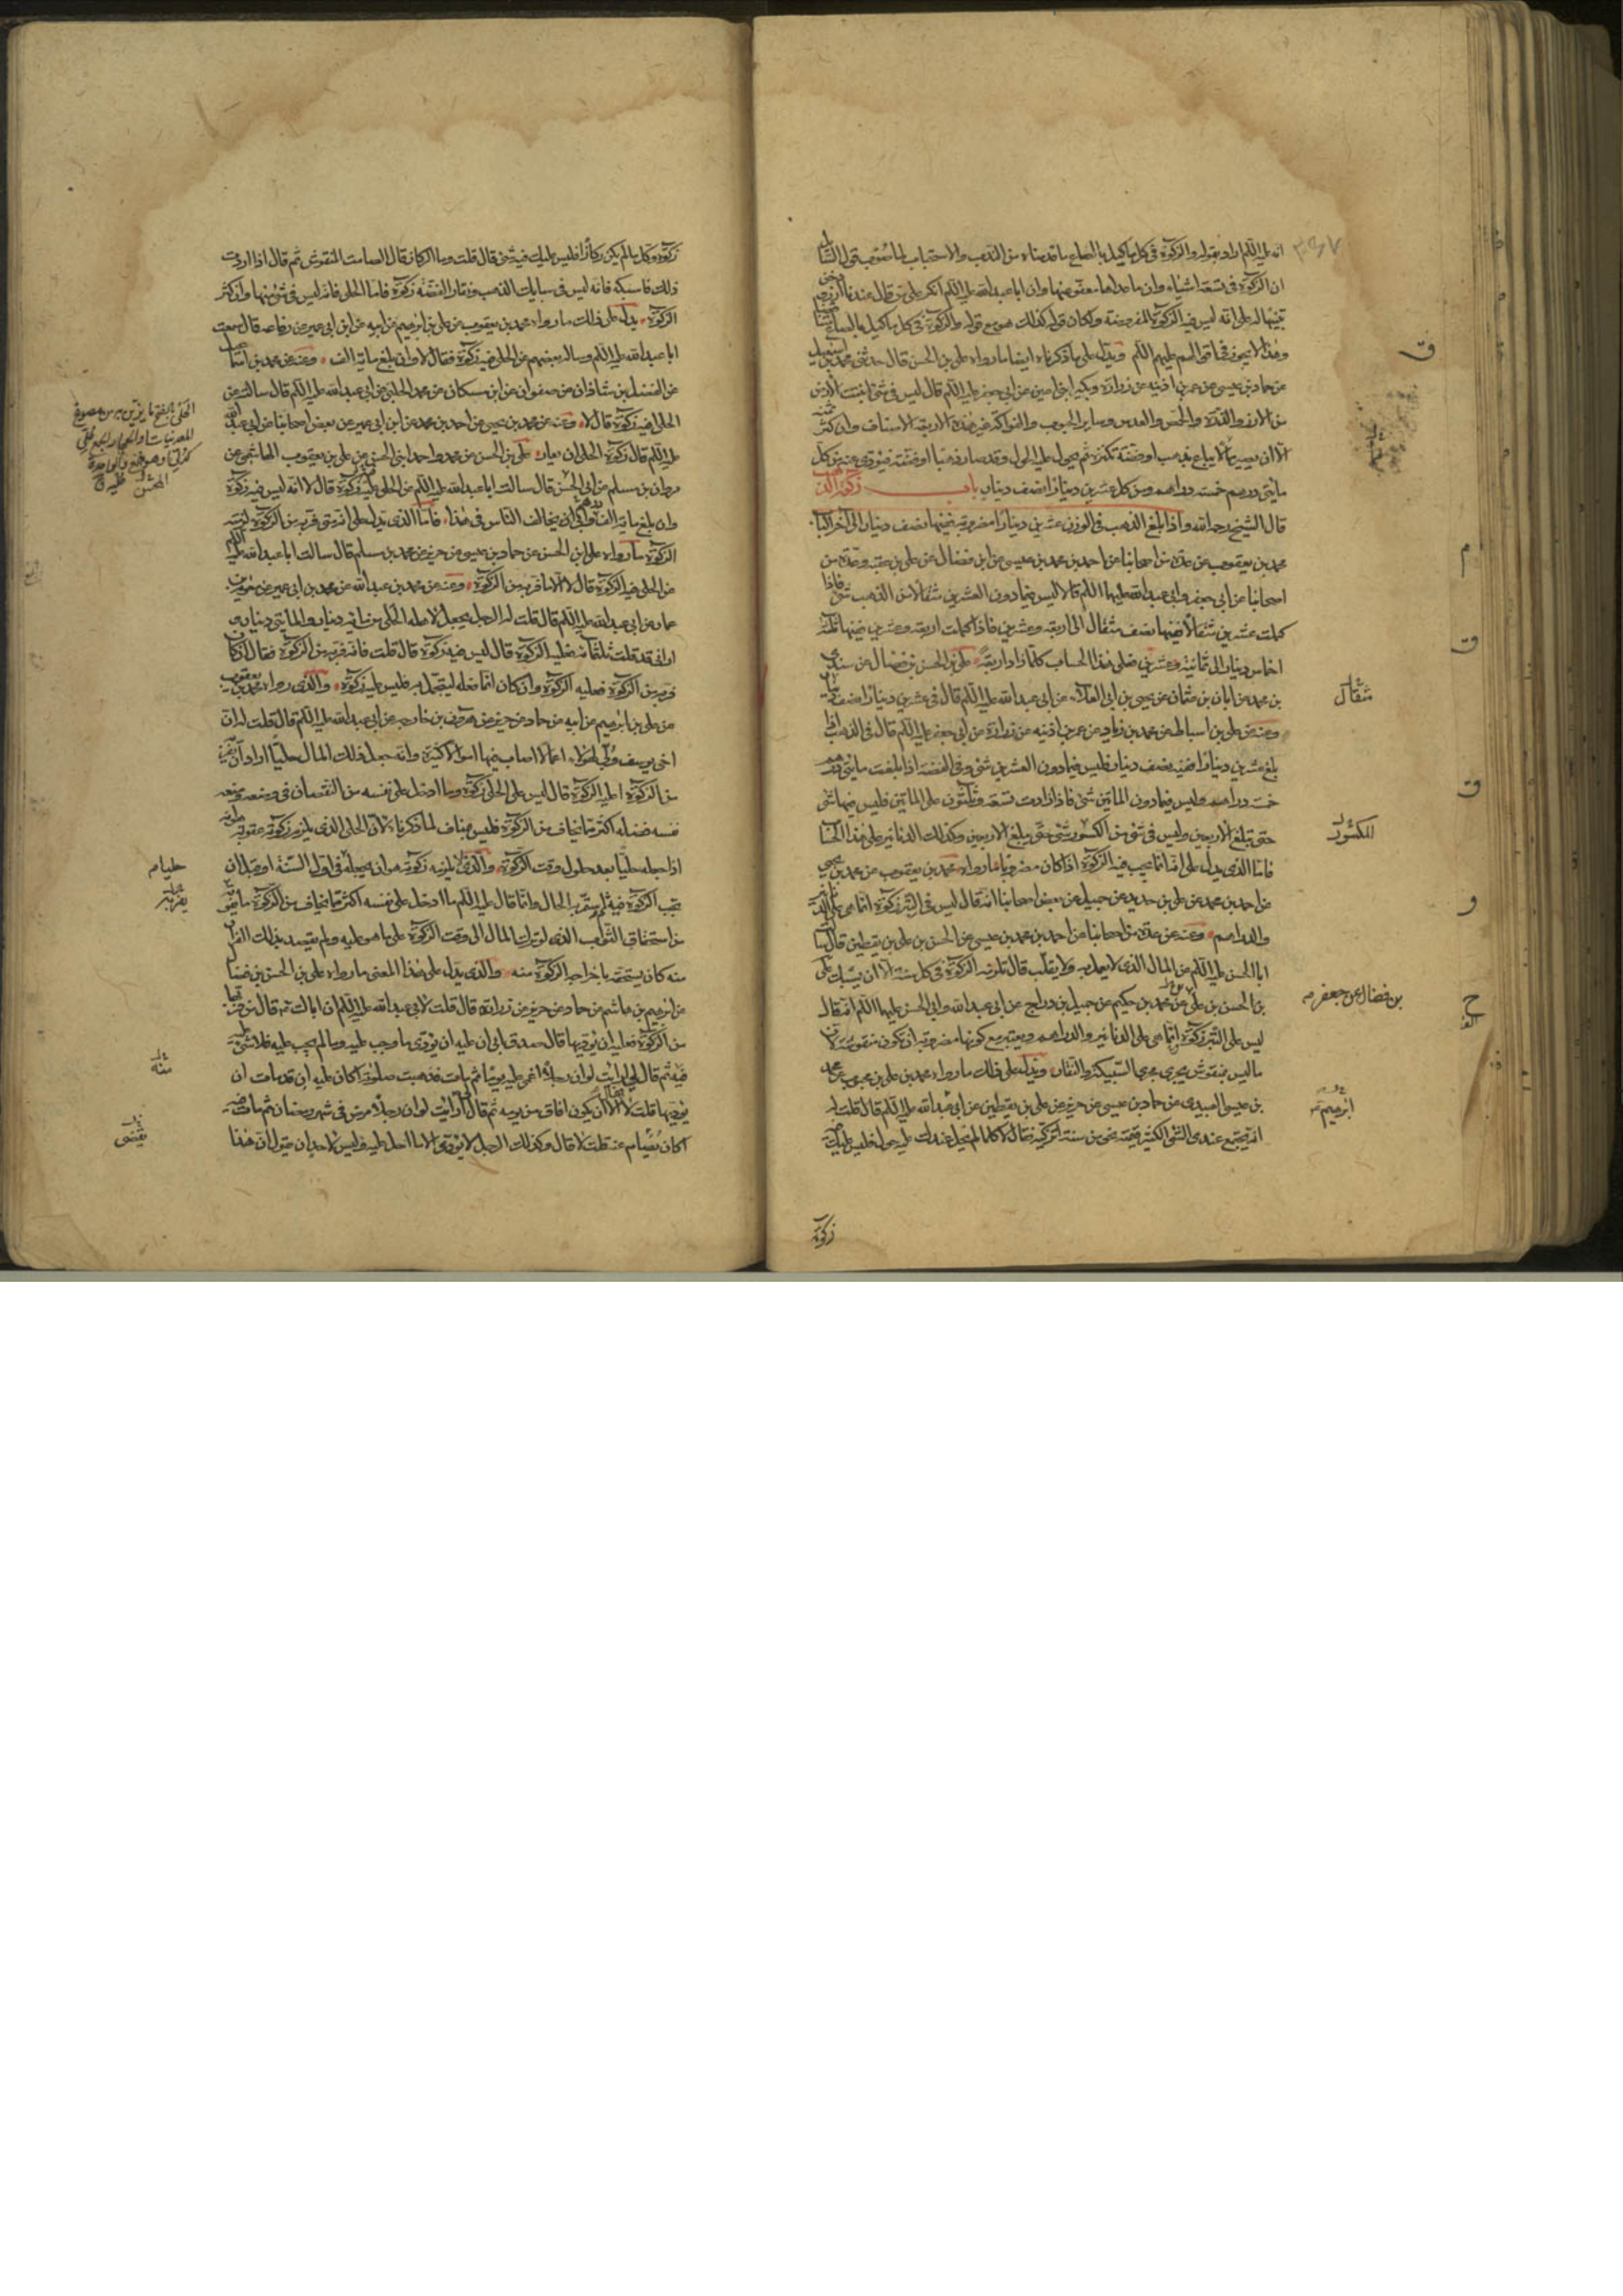 انه عليه السلام اراد بقوله والزكوة فى كل ما كيل بالصاع ما قدمناه من الندب والاستحباب لما صوب قول السائل
ان الزكوة فى تسعة اشياء وان ما عداها معفو عنها وان ابا عبدالله عليه السلام انكر على من قال عندنا ارز
تنبيها له على انه ليس فيه الزكوة المفروضة ولو كان قوله كذلك هو مع قوله والزكوة فى كل ما كيل بالصاع
وهذا لا يجوز فى اقوالهم عليهم السلام ويدل على ما ذكرناه ايضا ما رواه على بن الحسن قال حدثنى محمد بن اسمعيل
عن حماد بن عيسى عن عمر بن اذينه عن زرارة وبكير ابنى اعين عن ابى جعفر عليه السلام قال ليس فى شئ انبتت الارض
من الارز والذرة والحمص والعدس وساير الحبوب والفواكه غير هذه الاربعة الاصناف وان كثر ثمنه
الا ان يصير مالا يباع بذهب او فضة تكنزه ثم يحول عليه الحول وقد صار ذهبا او فضة فيؤدى عنه من كل
مايتى درهم خمسة دراهم ومن كل عشرين دينارا نصف دينار باب زكوة الذهب
قال الشيخ رحمه الله واذا بلغ الذهب فى الوزن عشرين دينارا مضروبة ففيها نصف دينار الى آخر الباب
محمد بن يعقوب عن عدة من اصحابنا عن احمد بن محمد بن عيسى عن ابن فضال عن على بن عقبه وعدة من
اصحابنا عن ابى جعفر وابى عبدالله عليهما السلام قالا ليس فيما دون العشرين مثقالا من الذهب شئ فاذا
كملت عشرين مثقالا ففيها نصف مثقال الى اربعة وعشرين فاذا كملت اربعة وعشرين ففيها ثلثة
اخماس دينار الى ثمانية وعشرين فعلى هذا الحساب كلما زاد اربعة على بن الحسن بن فضال عن سندى
بن محمد عن ابان بن عثمان عن يحيى بن ابى العلاء عن ابى عبدالله عليه السلام قال فى عشرين دينارا نصف دينار
وعنه عن على بن اسباط عن محمد بن زياد عن عمر بن اذينه عن زرارة عن ابى جعفر عليه السلام قال فى الذهب اذا
بلغ عشرين دينارا ففيه نصف دينار وليس فيما دون العشرين شئ وفى الفضة اذا بلغت مايتى درهم
خمسة دراهم وليس فيما دون الماتين شئ فاذا زادت تسعة وثلثون على الماتين فليس فيها شئ
حتى تبلغ الاربعين وليس فى شئ من الكسور شئ حتى يبلغ الاربعين وكذلك الدنانير على هذا الحساب
فاما الذى يدل على انه انما يجب فيه الزكوة اذا كان مضروبا ما رواه محمد بن يعقوب عن محمد بن يحيى
عن احمد بن محمد عن على بن حديد عن جميل عن بعض اصحابنا انه قال ليس فى التبر زكوة انما هى على الدنانير
والدراهم وعنه عن عدة من اصحابنا عن احمد بن محمد بن عيسى عن الحسن بن على بن يقطين قال سالت
ابا الحسن عليه السلام عن المال الذى لا يعمل به ولا يقلب قال تلزمه الزكوة فى كل سنة الا ان يسبك على
بن الحسن بن على عن محمد بن حكيم عن جميل بن دراج عن ابى عبدالله وابى الحسن عليهما السلام انه قال
ليس على التبر زكوة انما هى على الدنانير والدراهم ويعتبر مع كونها مضروبة ان تكون منقوشة لان
ما ليس بمنقوش يجرى مجرى السبيكة والنقار ويدل على ذلك ما رواه محمد بن على بن محبوب عن محمد
بن عيسى العبيدى عن حماد بن عيسى عن حريز عن على بن يقطين عن ابى عبدالله عليه السلام قال قلت له
انه يجتمع عندى الشئ الكثير قيمته نحو من سنة انزكيه فقال لا كلما لم يحل عندك عليه حول فليس عليك فيه
زكوة
مثقال
للكسور
بن فضال عن جعفر
ابرهيم
زكوة وكل ما لم يكن ركازا فليس عليك فيه شئ قال قلت وما الركاز قال الصامت المنقوش ثم قال اذا اردت
ذلك فاسبكه فانه ليس فى سبايك الذهب ونقار الفضة زكوة فاما الحلى فانه ليس فى شئ منها وان كثر
الزكوة يدل على ذلك ما رواه محمد بن يعقوب عن على بن ابرهيم عن ابيه عن ابن ابى عمير عن رفاعه قال سمعت
ابا عبدالله عليه السلام وساله بعضهم عن الحلى فيه زكوة فقال لا وان بلغ ماية الف وعنه عن محمد بن اسمعيل
عن الفضل بن شاذان عن صفوان عن ابن مسكان عن محمد الحلبى عن ابى عبدالله عليه السلام قال سالته عن
الحلى فيه زكوة قال لا وعنه عن محمد بن يحيى عن احمد بن محمد عن ابن ابى عمير عن بعض اصحابنا عن ابى عبدالله
عليه السلام قال زكوة الحلى ان يعار على بن الحسن عن محمد واحمد ابنى الحسن عن على بن يعقوب الهاشمى عن
مروان بن مسلم عن ابى الحسن قال سالت ابا عبدالله عليه السلام عن الحلى عليه زكوة قال لا انه ليس فيه زكوة
وان بلغ ماية الف وابى ان يخالف الناس فى هذا فاما الذى يدل على انه متى فر به من الزكوة لزمته
الزكوة ما رواه على بن الحسن عن حماد بن عيسى عن حريز عن محمد بن مسلم قال سالت ابا عبدالله عليه السلام
عن الحلى فيه الزكوة قال لا الا ما فر به من الزكوة وعنه عن محمد بن عبدالله عن محمد بن ابى عمير عن معوية بن
عمار عن ابى عبدالله عليه السلام قال قلت له الرجل يجعل لاهله الحلى من ماية دينار والمأتى دينار و
ارانى قد قلت ثلثمائه فعليه الزكوة قال ليس فيه زكوة قال قلت فانه فر به من الزكوة فقال ان كان
فر به من الزكوة فعليه الزكوة وان كان انما فعله ليتجمل به فليس عليه زكوة والذى رواه محمد بن يعقوب
عن على بن ابرهيم عن ابيه عن حماد عن حريز عن هرون بن خارجه عن ابى عبدالله عليه السلام قال قلت له ان
اخى يوسف ولى لهؤلاء اعمالا اصاب فيها اموالا كثيرة وانه جعل ذلك المال حليا اراد ان يفر به
من الزكوة اعليه الزكوة قال ليس على الحلى زكوة وما ادخل على نفسه من النقصان فى وضعه ومنعه
نفسه فضله اكثر مما يخاف من الزكوة فليس بمناف لما ذكرناه لان الحلى الذى يلزم زكوته عقوبة
اذا جعله حليا بعد حلول وقت الزكوة والذى لا يلزمه زكوته هو ان يجعله فى اول السنة او قبل ان
تجب الزكوة فيه الحال وانما قال عليه السلام ما ادخل على نفسه اكثر مما يخاف من الزكوة
من استحقاق الثواب الذى لو ترك المال الى وقت الزكوة على ما هو عليه ولم يقصد بذلك الفرار
منه كان يستحقه باخراجه الزكوة منه والذى يدل على هذا المعنى ما رواه على بن الحسن بن فضال
عن ابرهيم بن هاشم عن حماد عن حريز عن زرارة قال قلت لابى عبدالله عليه السلام ان اباك قال من فر بها
من الزكوة فعليه ان يؤديها قال صدق ابى ان عليه ان يؤدى ما وجب عليه وما لم يجب عليه فلا شئ عليه
فيه ثم قال لى ارايت لو ان رجلا اغمى عليه يوما ثم مات فذهبت صلوته اكان عليه ان قد مات ان
يؤديها قلت لا الا ان يكون افاق من يومه ثم قال ارايت لو ان رجلا مرض فى شهر رمضان ثم مات فيه
اكان يصام عنه قلت لا قال وكذلك الرجل لا يؤدى الا ما احل عليه وليس لاحد ان يقول ان هذا